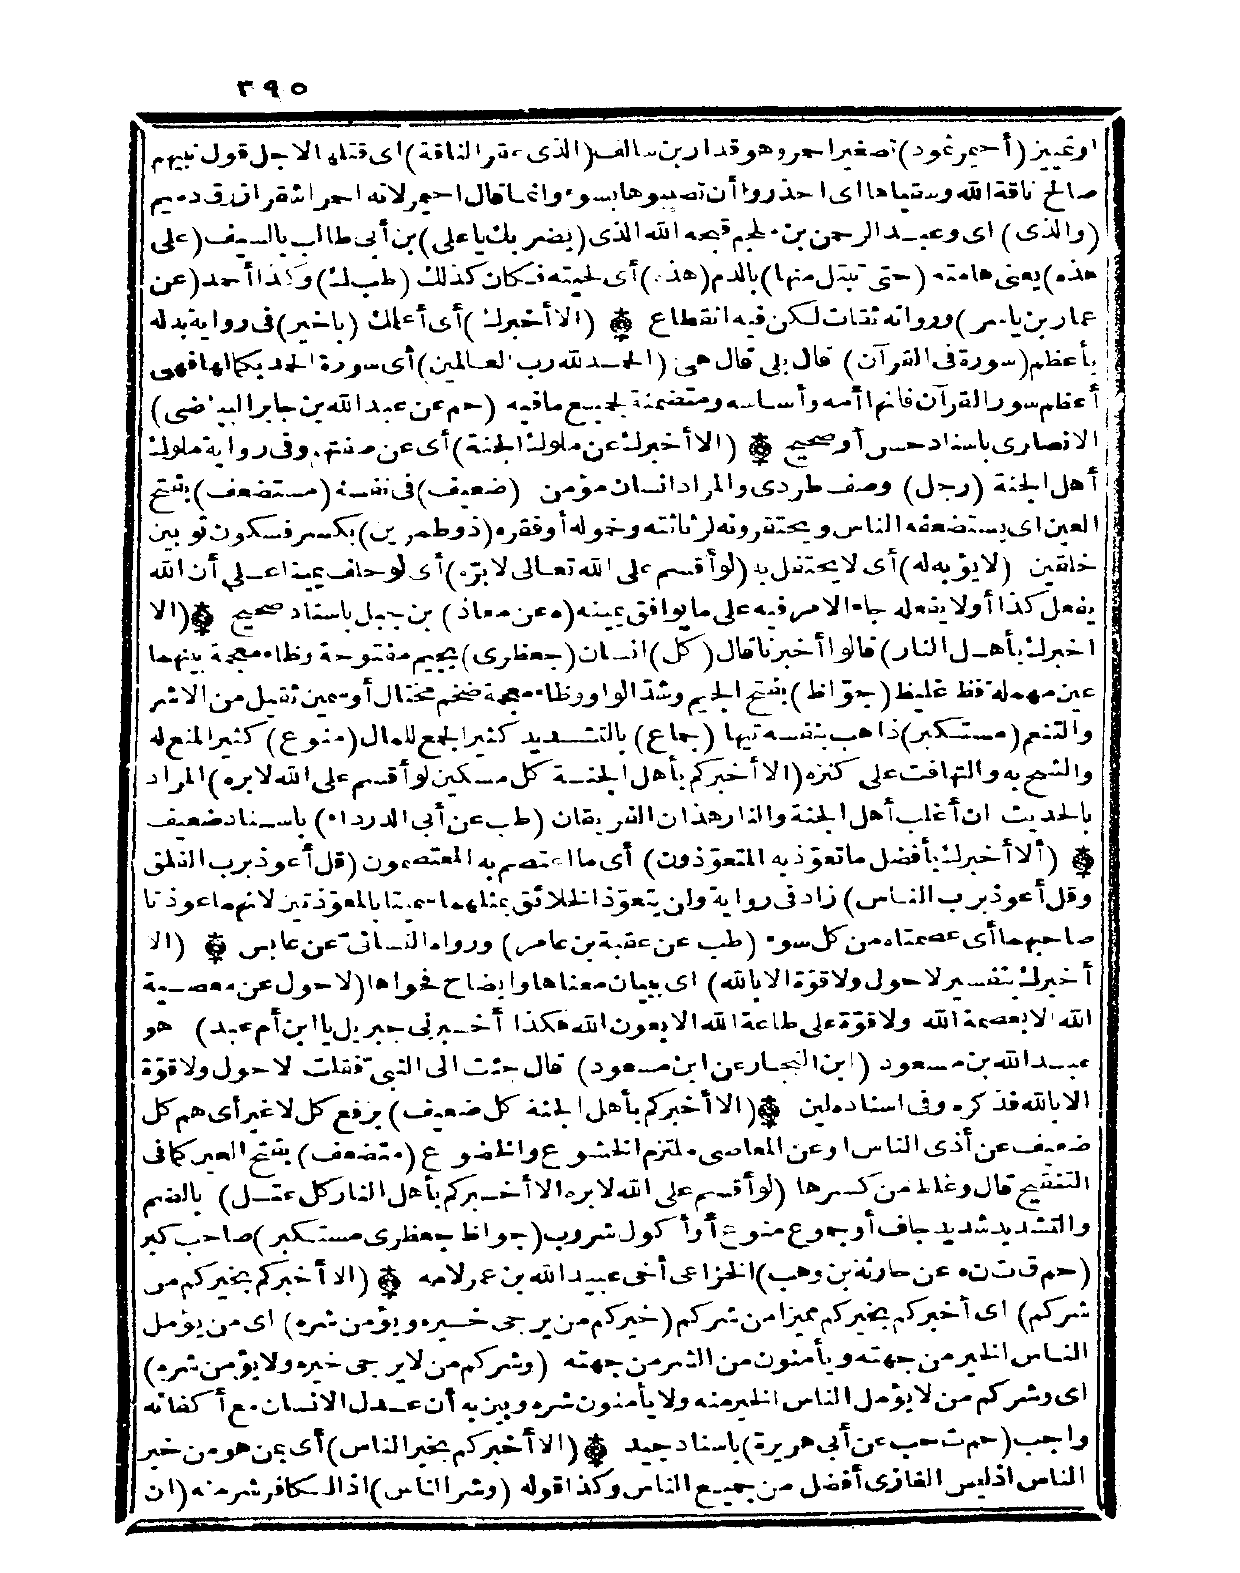 ٣٩٥
او تمييز (أحيمر ثمود) تصغير احمر وهو قدار بن سالف (الذى عقر الناقة) اى قتلها لاجل قول نبيهم
صالح ناقة الله وسقياها اى احذروا أن تصيبوها بسوء وانما قال احيمر لانه احمر اشقر ازرق دميم
(والذى) اى وعبد الرحمن بن ملجم قبحه الله الذى (يضربك يا على) بن أبى طالب بالسيف (على
هذه) يعنى هامته (حتى تبتل منها) بالدم (هذه) أى لحيته فكان كذلك (طب ك) وكذا أحمد (عن
عمار بن ياسر) ورواته ثقات لكن فيه انقطاع ۞ (الا أخبرك) أى أعلمك (باخير) فى رواية بدله
بأعظم (سورة فى القرآن) قال بلى قال هى (الحمد لله رب العالمين) أى سورة الحمد بكمالها فهى
أعظم سور القرآن فانها أمه وأساسه ومتضمنة لجميع ما فيه (حم عن عبد الله بن جابر البياضى)
الانصارى باسناد حسن أو صحيح ۞ (الا أخبرك عن ملوك الجنة) أى عن صفتهم وفى رواية ملوك
أهل الجنة (رجل) وصف طردى والمراد انسان مؤمن (ضعيف) فى نفسه (مستضعف) بفتح
العين اى يستضعفه الناس ويحتقرونه لرثاثته وخموله أو فقره (ذو طمرين) بكسر فسكون ثوبين
خلقين (لا يؤبه له) أى لا يحتفل به (لو أقسم على الله تعالى لابرّه) أى لو حلف يمينا على أن الله
يفعل كذا أو لا يفعله جاء الامر فيه على ما يوافق يمينه (ه عن معاذ) بن جبل باسناد صحيح ۞ (الا
اخبرك بأهل النار) قالوا أخبرنا قال (كل) انسان (جعظرى) بجيم مفتوحة وظاء معجمة بينهما
عين مهملة فظ غليظ (جوّاظ) بفتح الجيم وشد الواو وظاء معجمة ضخم مختال أو سمين ثقيل من الاشر
والتنعم (مستكبر) ذاهب بنفسه تيها (جماع) بالتشديد كثير الجمع للمال (منوع) كثير المنع له
والشح به والتهافت على كنزه (الا أخبركم بأهل الجنة كل مسكين لو أقسم على الله لابره) المراد
بالحديث ان أغلب أهل الجنة والنار هذان الفريقان (طب عن أبى الدرداء) باسناد ضعيف
۞ (ألا أخبرك بأفضل ما تعوّذ به المتعوّذون) أى ما اعتصم به المعتصمون (قل أعوذ برب الفلق
وقل أعوذ برب الناس) زاد فى رواية ولن يتعوّذ الخلائق بمثلهما سميتا بالمعوّذتين لانهما عوذتا
صاحبهما أى عصمتاه من كل سوء (طب عن عقبة بن عامر) ورواه النسائى عن عابس ۞ (الا
أخبرك بتفسير لا حول ولا قوّة الا بالله) اى ببيان معناها وايضاح فحواها (لا حول عن معصية
الله الا بعصمة الله ولا قوّة على طاعة الله الا بعون الله هكذا أخبرنى جبريل يا ابن أم عبد) هو
عبد الله بن مسعود (ابن النجار عن ابن مسعود) قال جئت الى النبى فقلت لا حول ولا قوّة
الا بالله فذكره وفى اسناده لين ۞ (الا أخبركم بأهل الجنة كل ضعيف) برفع كل لا غير أى هم كل
ضعيف عن أذى الناس او عن المعاصى ملتزم الخشوع والخضوع (متضعف) بفتح العين كما فى
التنقيح قال وغلط من كسرها (لو أقسم على الله لابره الا أخبركم بأهل النار كل عتل) بالضم
والتشديد شديد جاف أو جموع منوع أو أكول شروب (جواظ جعظرى مستكبر) صاحب كبر
(حم ق ت ن ه عن حارثة بن وهب) الخزاعى أخى عبيد الله بن عمر لامه ۞ (الا أخبركم بخيركم من
شركم) اى أخبركم بخيركم مميزا من شركم (خيركم من يرجى خيره ويؤمن شره) اى من يؤمل
الناس الخير من جهته ويأمنون من الشر من جهته (وشركم من لا يرجى خيره ولا يؤمن شره)
اى وشركم من لا يؤمل الناس الخير منه ولا يأمنون شره وبين به أن عدل الانسان مع أكفائه
واجب (حم ت حب عن أبى هريرة) باسناد جيد ۞ (الا أخبركم بخير الناس) أى بمن هو من خير
الناس اذ ليس الغازى أفضل من جميع الناس وكذا قوله (وشر الناس) اذ الكافر شر منه (ان